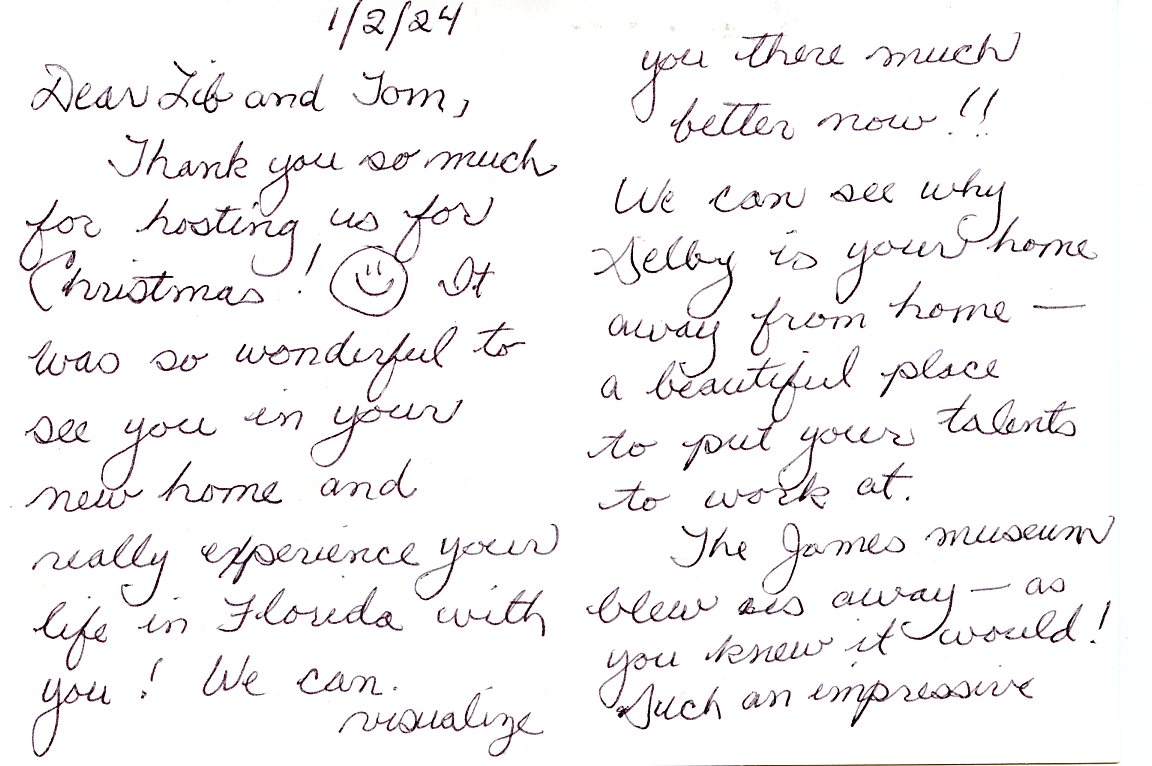 1/2/24
Dear Lib and Tom,
Thank you so much
for hosting us for
Christmas! It
was so wonderful to
see you in your
new home and
really experience your
life in Florida with
you! We can
visualize
you there much
better now!!
We can see why
Selby is your home
away from home —
a beautiful place
to put your talents
to work at.
The James museum
blew us away — as
you knew it would!
Such an impressive